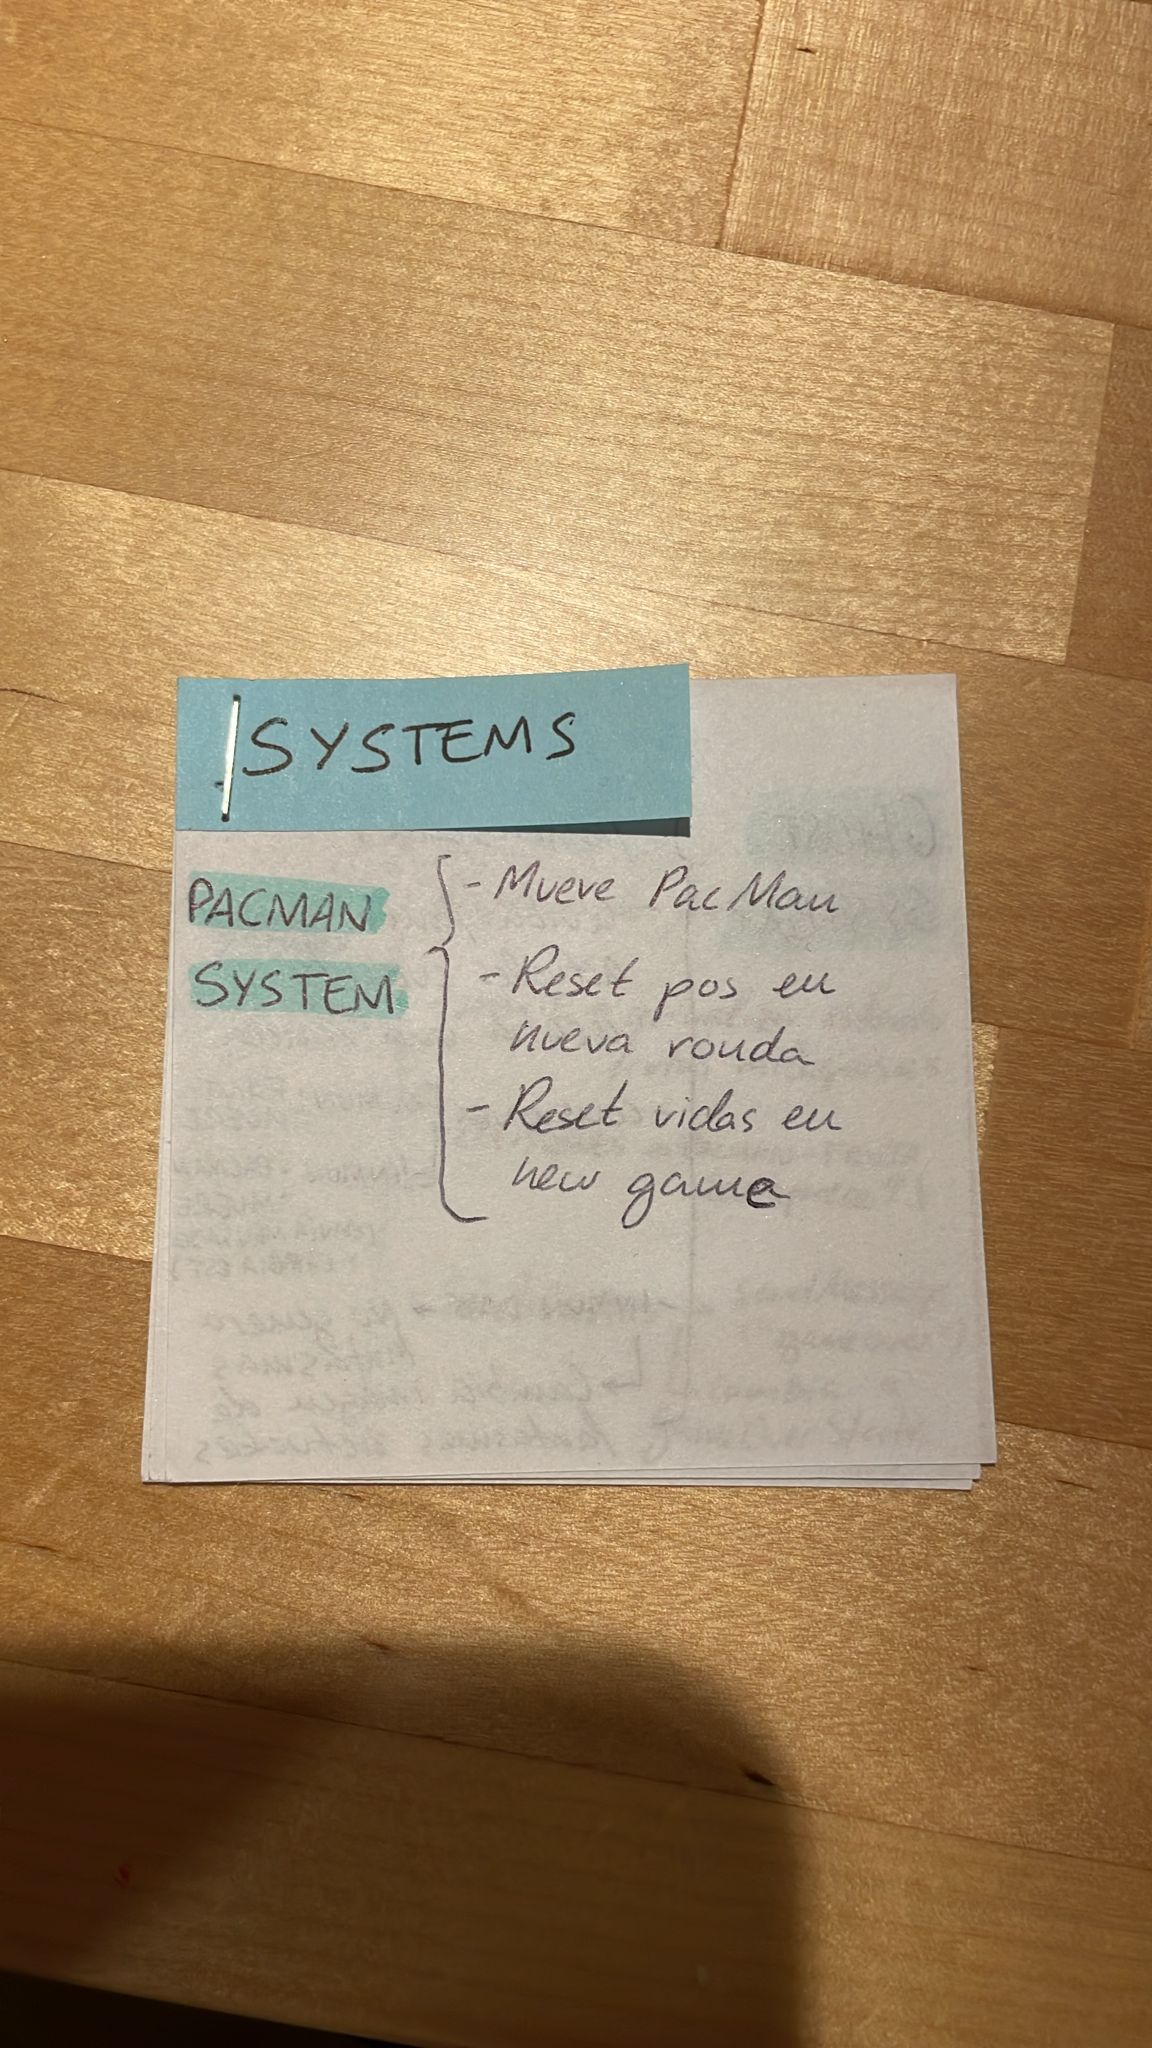 SYSTEMS
PACMAN
SYSTEM
- Mueve PacMan
- Reset pos en
nueva ronda
- Reset vidas en
new game